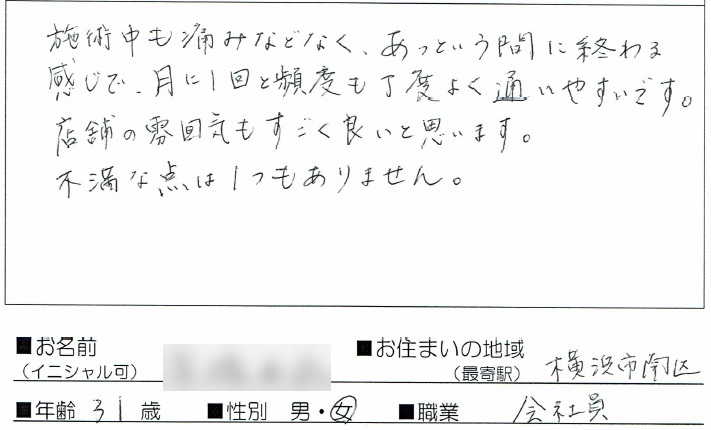 施術中も痛みなどなく、あっという間に終わる
感じで、月に1回と頻度も丁度よく通いやすいです。
店舗の雰囲気もすごく良いと思います。
不満な点は1つもありません。
■お名前
（イニシャル可）
■お住まいの地域
（最寄駅） 横浜市南区
■年齢 31 歳 ■性別 男・女 ■職業 会社員